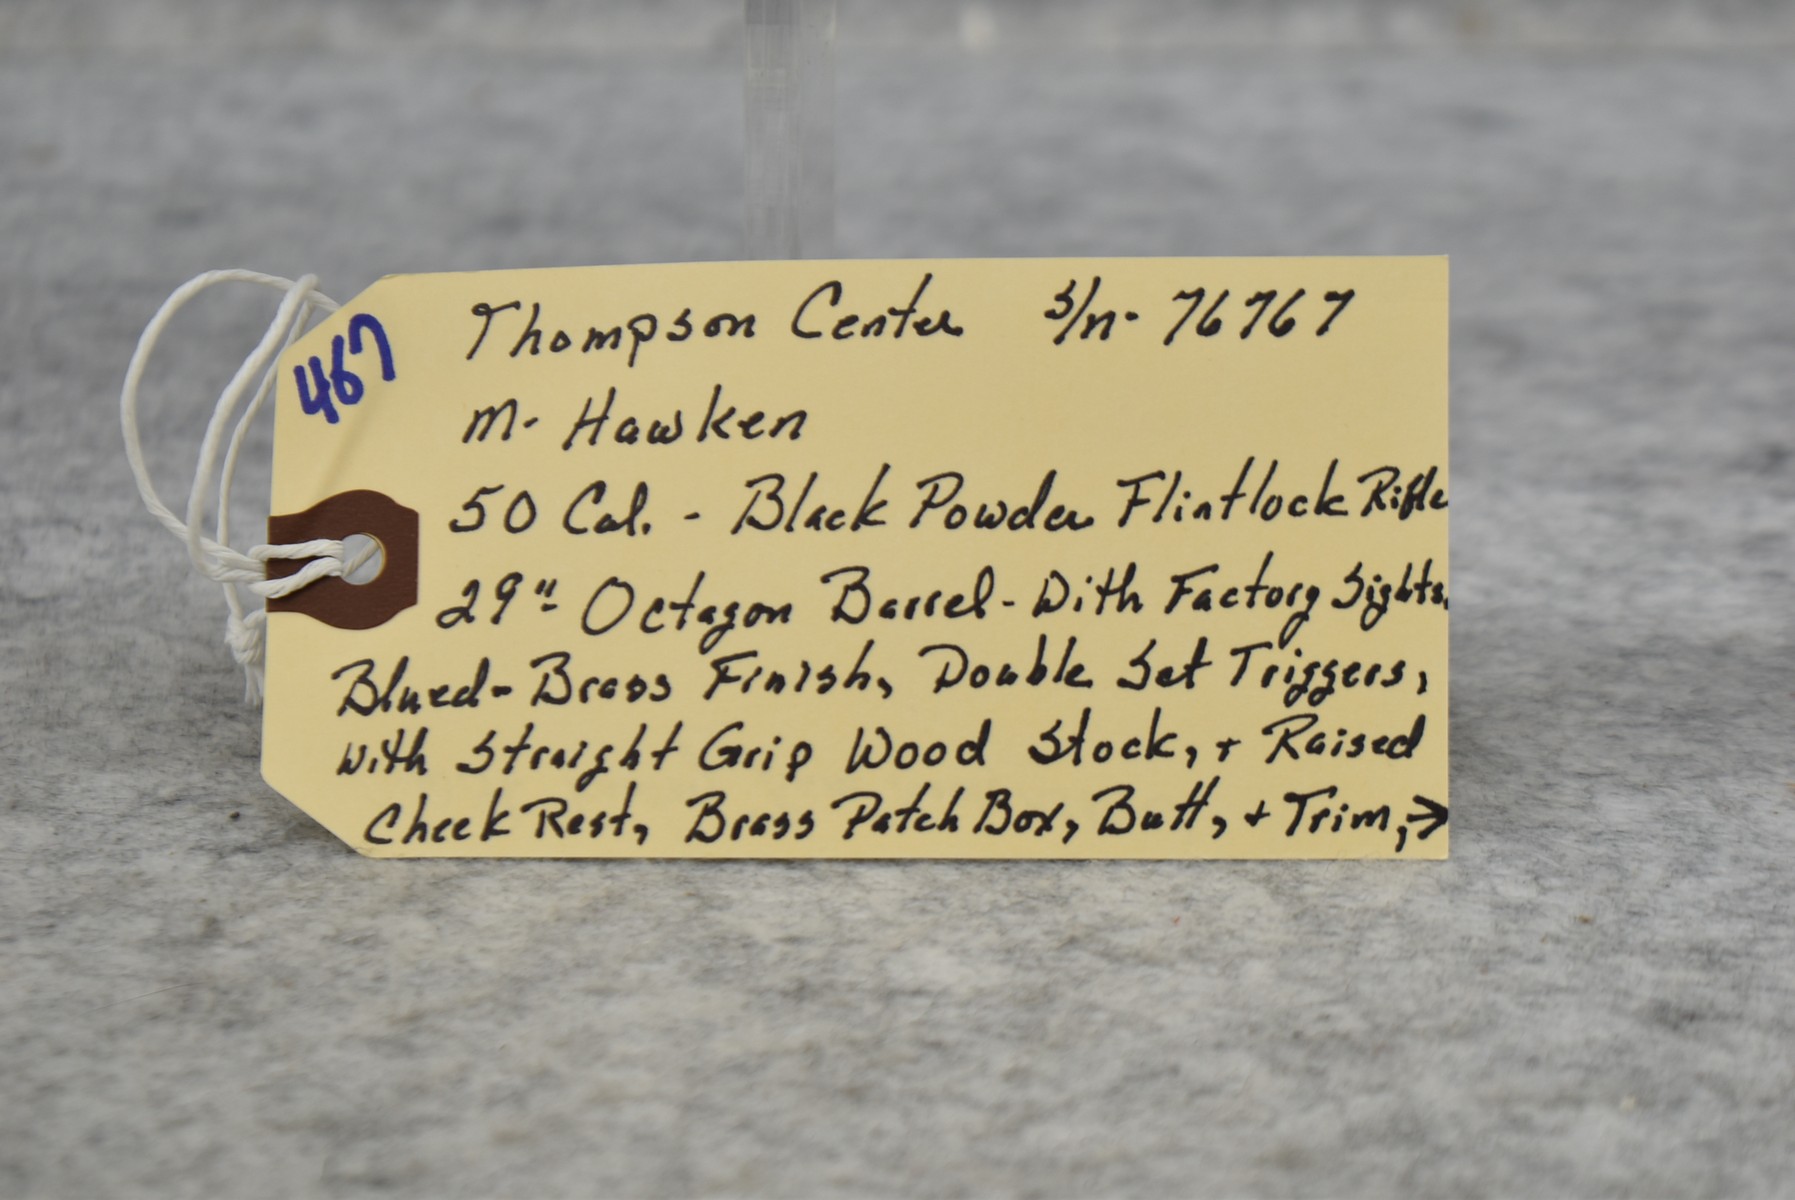 467
Thompson Center S/n- 76767
M- Hawken
50 Cal. - Black Powder Flintlock Rifle
29"- Octagon Barrel - With Factory Sights.
Blued - Brass Finish, Double Set Triggers,
with Straight Grip Wood Stock, + Raised
Cheek Rest, Brass Patch Box, Butt, + Trim, →